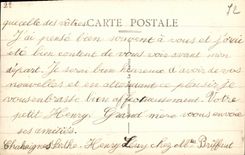 21
12
que celle des vôtres CARTE POSTALE
J'ai pensé bien souvent à vous et j'aurai
été bien content de vous voir avant mon
départ. Je serai bien heureux d'avoir de vos
nouvelles et en attendant ce plaisir je
vous embrasse bien affectueusement. Votre
petit Henry. Grand mère vous envoie
ses amitiés.
Henry chez Mme